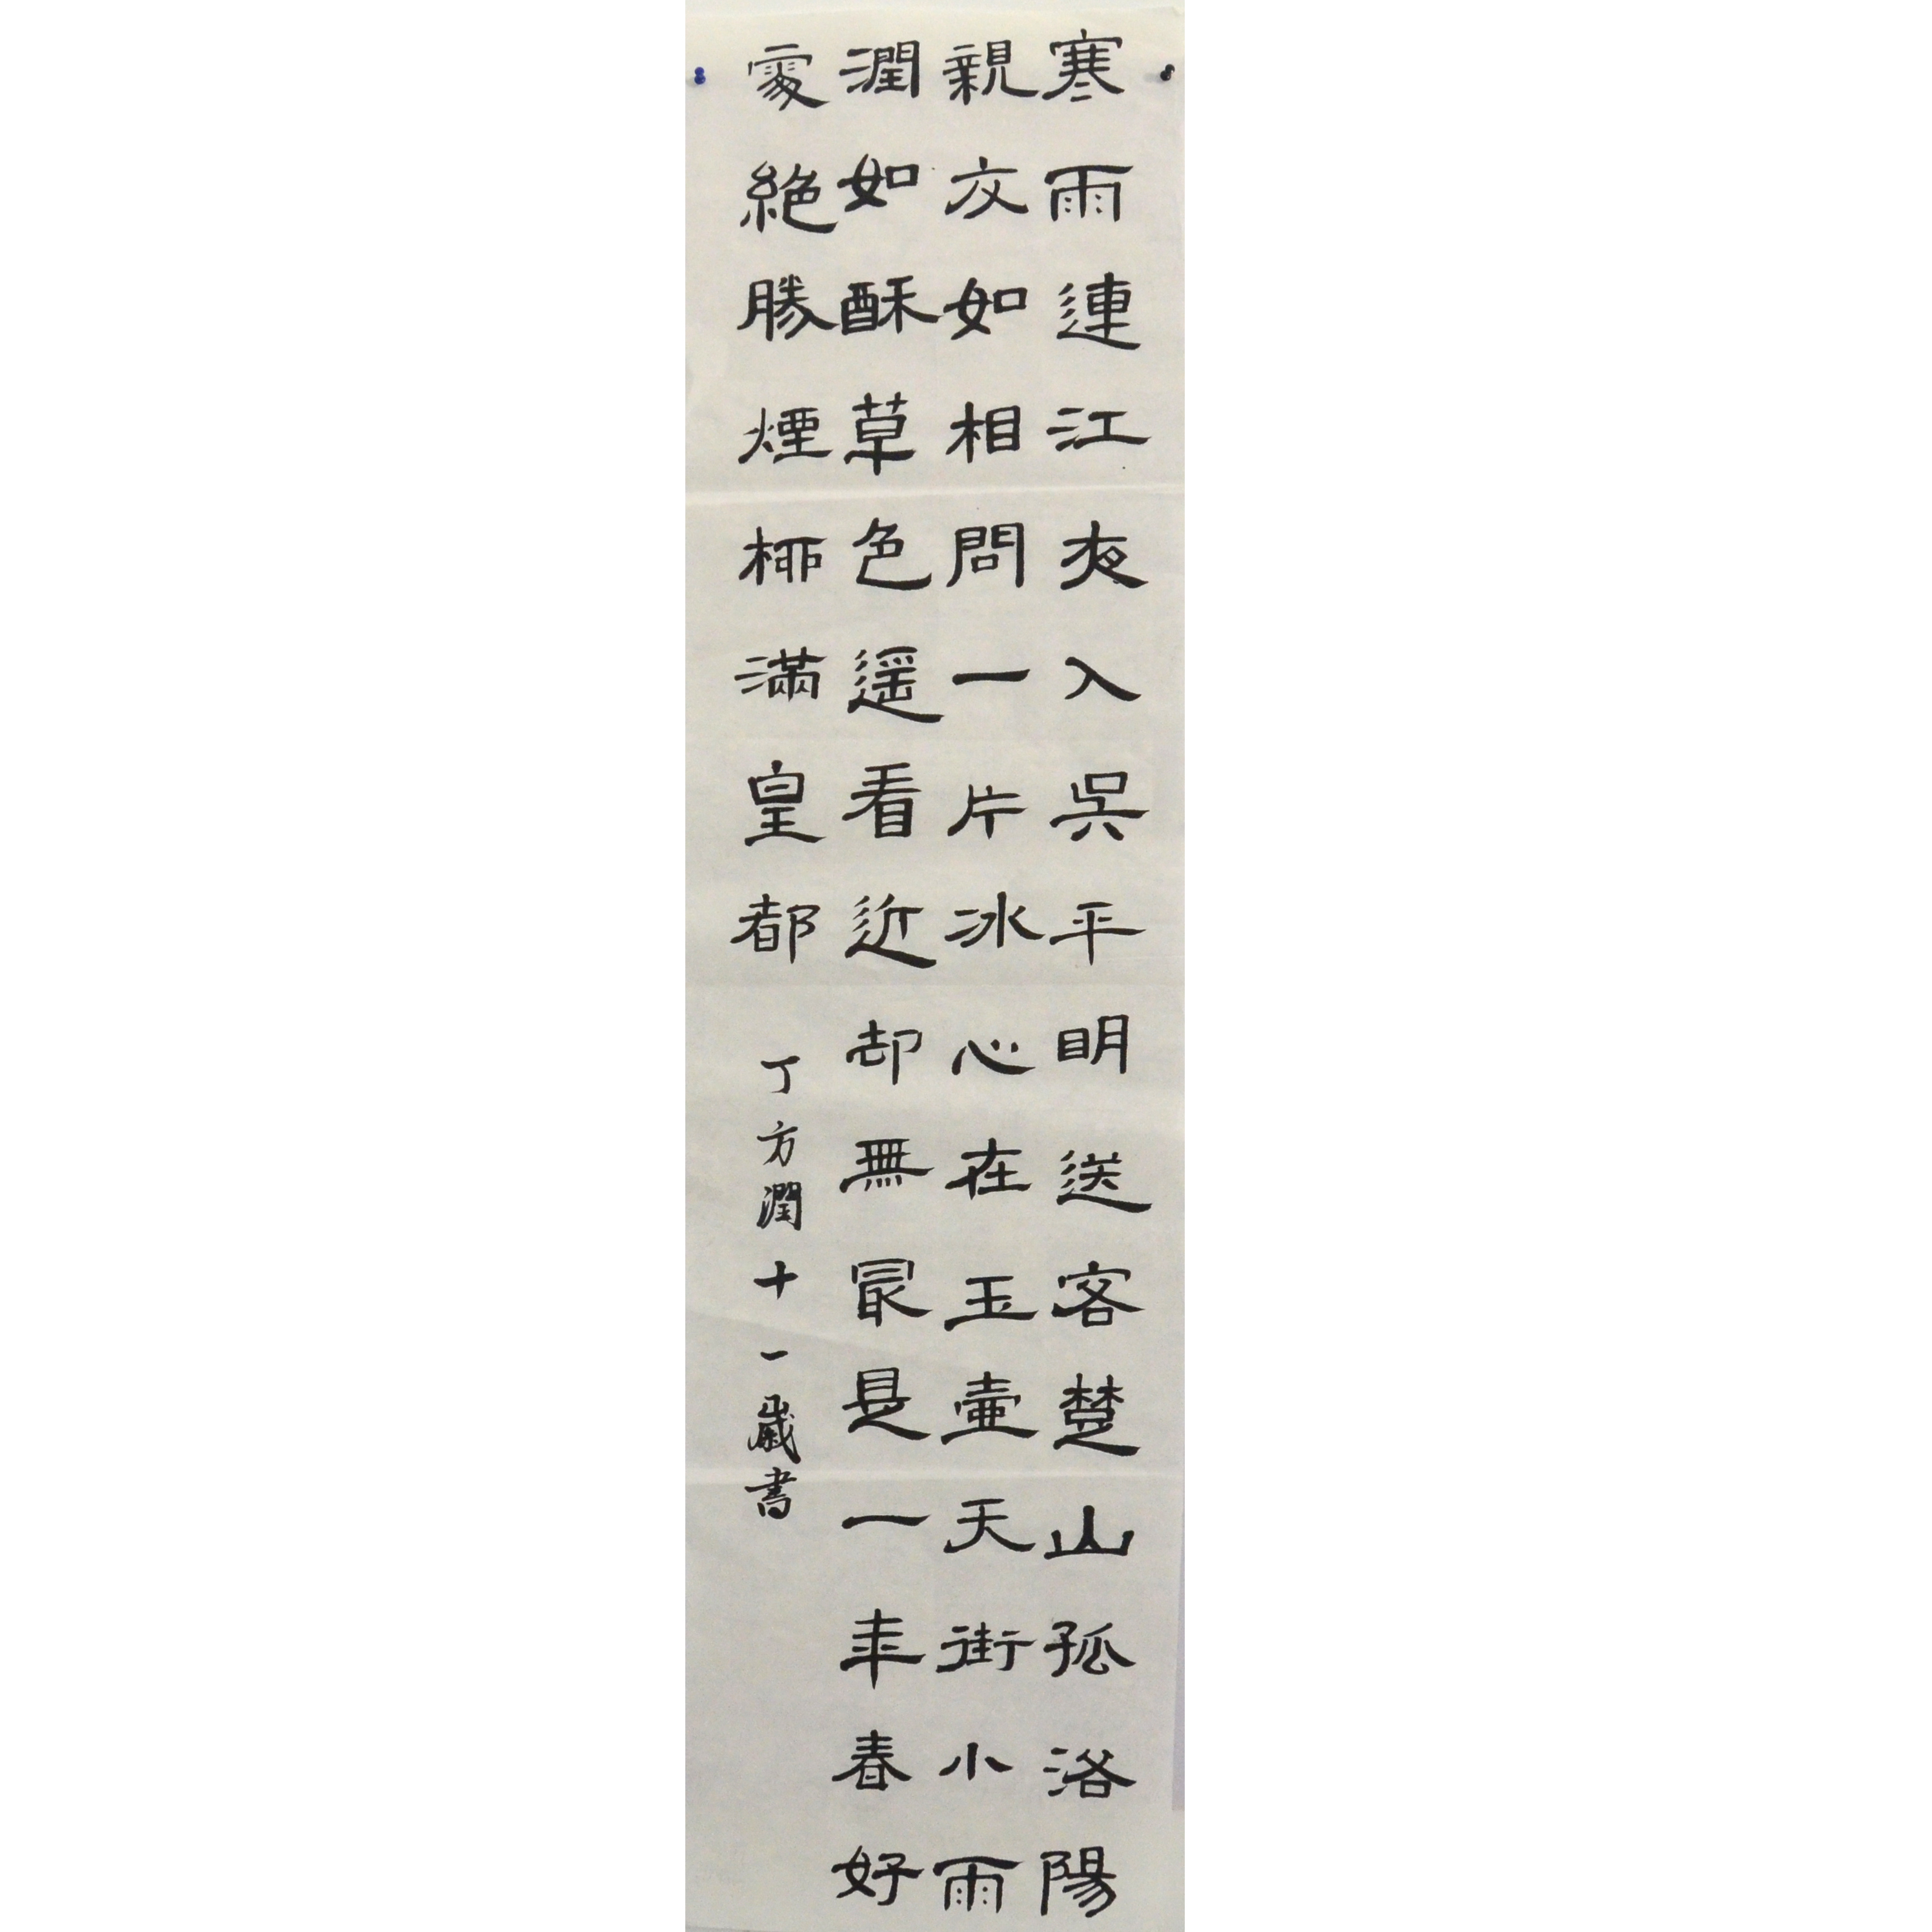 寒雨連江夜入吳平明送客楚山孤洛陽
親友如相問一片冰心在玉壺天街小雨
潤如酥草色遥看近却無最是一年春好
處絶勝煙柳滿皇都
丁方潤十一歲書